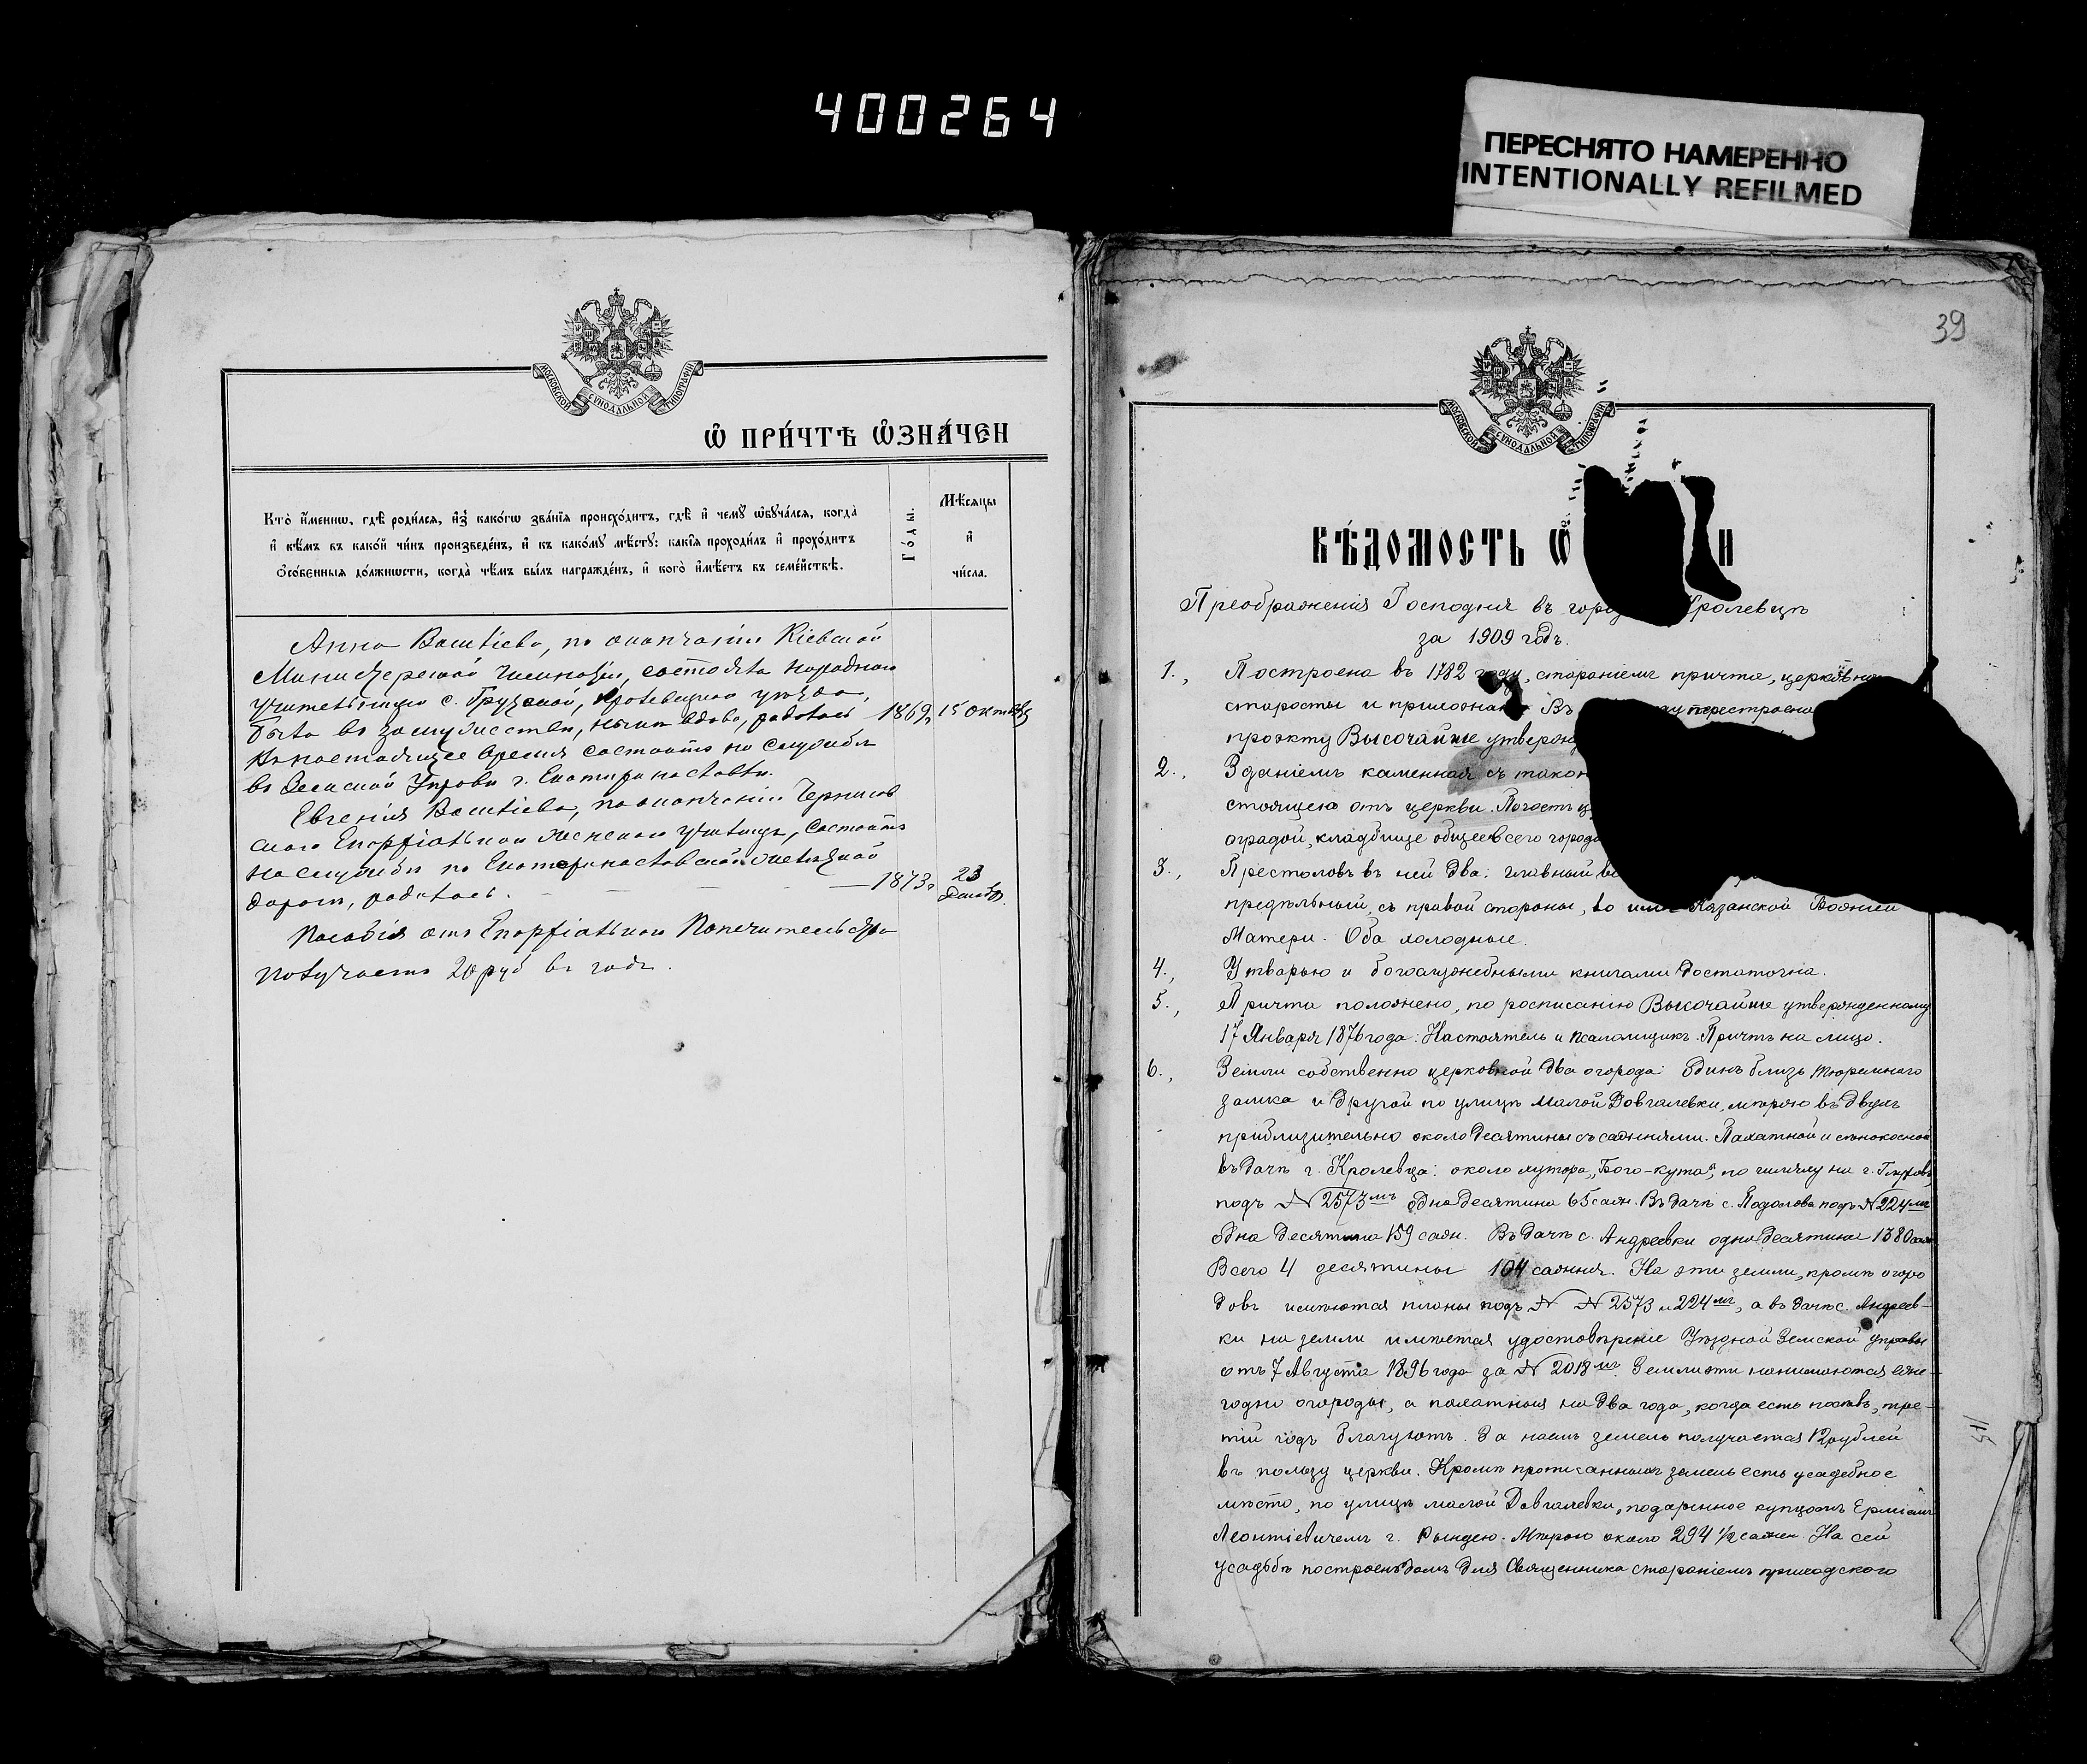 400264
ПЕРЕСНЯТО НАМЕРЕННО
INTENTIONALLY REFILMED
МОСКОВСКОЙ СѴНОДАЛЬНОЙ ТИПОГРАФІИ
Ѡ ПРИ́ЧТѢ ѠЗНА́ЧЕН
Кто̀ и҆́менно, гдѣ̀ роди́лсѧ, и҆з̾ како́гѡ зва́нїѧ происхо́дитъ, гдѣ̀ и҆ чемꙋ̀ ѡ҆бꙋча́лсѧ, когда̀
и҆ кѣ́мъ въ како́й чи́нъ произведе́нъ, и҆ къ како́мꙋ мѣ́стꙋ: какі̑ѧ проходи́лъ и҆ прохо́дитъ
ѻ҆со́бенныѧ до́лжности, когда̀ чѣ́мъ бы́лъ награжде́нъ, и҆ кого̀ и҆мѣ́етъ въ семе́йствѣ.
Го́ды.
Мѣ́сѧцы
и҆
чи́сла.
Анна Васильева, по окончаніи Кіевской
Министерской Гимназіи, состояла народною
учительницею с. Грузской, Кролевецкаго уѣзда,
была въ замужествѣ, нынѣ вдова, родилась 1869г. 15 Октября
Въ настоящее время состоитъ на службѣ
въ Земской Управѣ г. Екатеринославля.
Евгенія Васильева, по окончаніи Чернигов
скаго Епархіальнаго женскаго училища, состоитъ
на службѣ по Екатеринославской желѣзной
дорогѣ, родилась. 1873г. 23 Декабр.
Пособія отъ Епархіальнаго Попечительства
получаетъ 20 руб въ годъ.
39
МОСКОВСКОЙ СѴНОДАЛЬНОЙ ТИПОГРАФІИ
ВѢ́ДОМОСТЬ Ѡ҆ И
Преображенія Господня въ горо Кролевцѣ
за 1909 годъ.
1., Построена въ 1782 году, стараніемъ причта, церковна
старосты и прихожанъ Въ перестроена
проэкту Высочайше утвержд
2., Зданіемъ каменная съ тако
стоящею отъ церкви. Погостъ ц
оградой, кладбище общее всего города
3., Престоловъ въ ней два: главный
предѣльный, съ правой стороны, во имя Казанской Божией
Матери. Оба холодные.
4., Утварью и богослужебными книгами достаточна.
5., Причта положено, по росписанію Высочайше утвержденному
17 Января 1876 года: Настоятель и псаломщикъ. Причтъ на лицо.
6., Земли собственно церковной два огорода: одинъ близь тюремнаго
замка и другой по улицѣ Малой Довгалевки, мѣрою въ двухъ
приблизительно около десятины съ саженями. Пахатной и сѣнокосной
въ дачѣ г. Кролевца: около хутора „Бого-кута“, по шляху на г. Глуховъ
подъ № 2573мъ одна десятина 65 саж. Въ дачѣ с. Подолова подъ № 224мъ
одна десятина 159 саж. Въ дачѣ с. Андреевки одна десятина 1380 саж.
Всего 4 десятины 104 сажня. На эти земли, кромѣ огоро
довъ имѣются планы подъ № № 2573 и 224мъ, а въ дачѣ с. Андреев-
ки на земли имѣется удостовѣреніе Уѣздной Земской управы
отъ 7 Августа 1896 года за № 2018мъ. Земли эти нанимаются еже-
годно огороды, а пахатныя на два года, когда есть посѣвъ, тре-
тій годъ благуютъ. За наемъ земель получается 12 рублей
въ пользу церкви. Кромѣ прописанныхъ земель есть усадебное
мѣсто, по улицѣ малой Довгалевки, подаренное купцомъ
Леонтіевичемъ г. Рындею. Мѣрою около 294 1/2 сажен. На сей
усадьбѣ построенъ домъ для Священника стараніемъ приходского